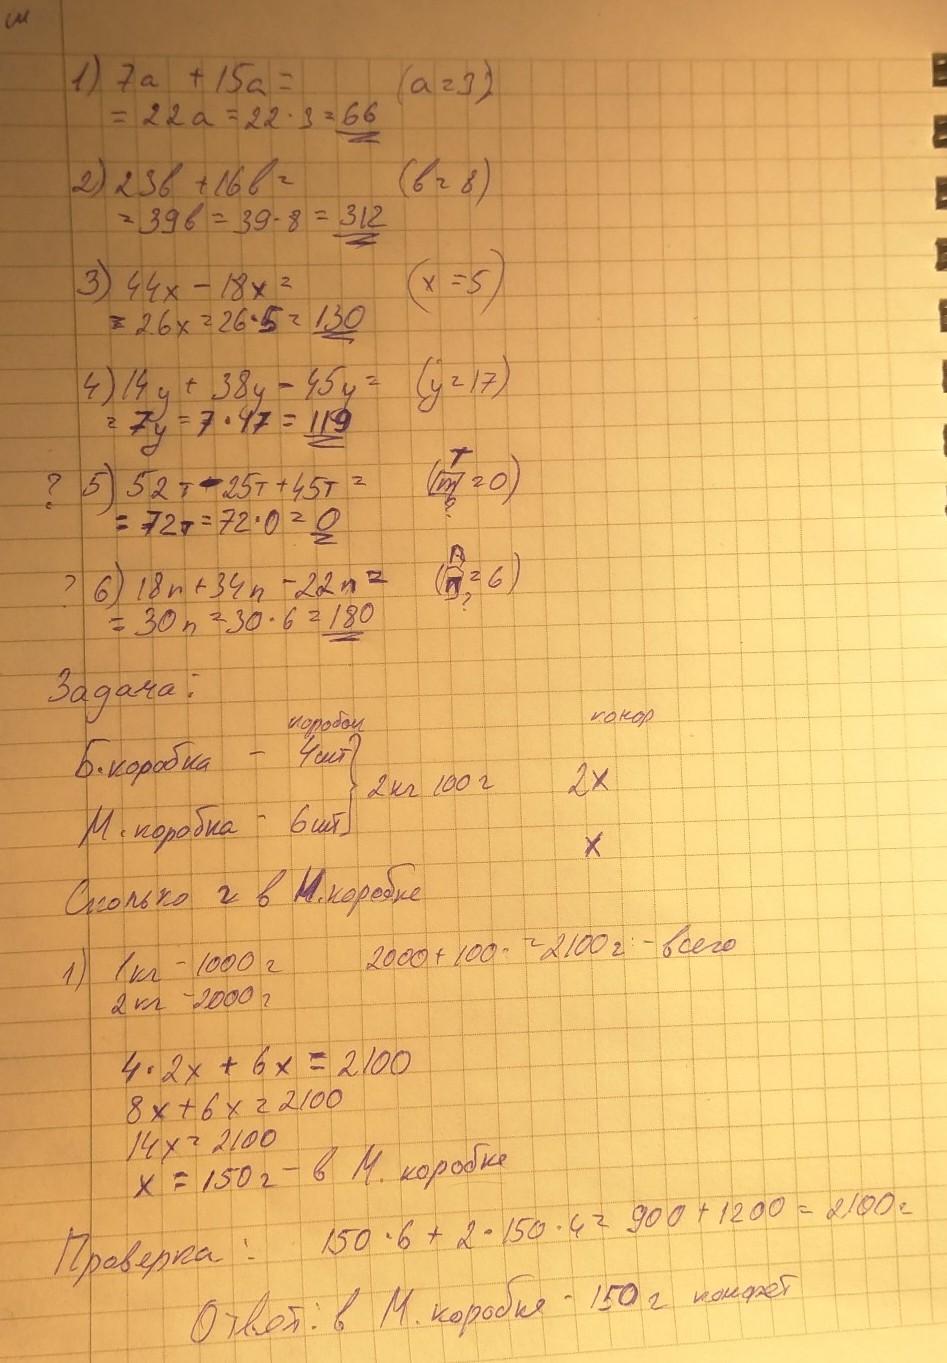 1) 7а + 15а = (а=3)
= 22а = 22·3 = 66
2) 23в + 16в = (в = 8)
= 39в = 39·8 = 312
3) 44x - 18x = (x = 5)
= 26x = 26·5 = 130
4) 14y + 38y - 45y = (y = 17)
= 7y = 7·17 = 119
? 5) 52т - 25т + 45т = (m = 0) т ?
= 72т = 72·0 = 0
? 6) 18n + 34n - 22n = (n = 6) ?
= 30n = 30·6 = 180
Задача:
коробок
Б. коробка - 4 шт } 2кг 100 г 2x
М. коробка - 6 шт x
Сколько г в М. коробке
1) 1кг - 1000 г 2000 + 100 = 2100 г - всего
2 кг - 2000 г
4·2x + 6x = 2100
8x + 6x = 2100
14x = 2100
x = 150 г - в М. коробке
Проверка: 150·6 + 2·150·4 = 900 + 1200 = 2100 г
Ответ: в М. коробке - 150 г конфет